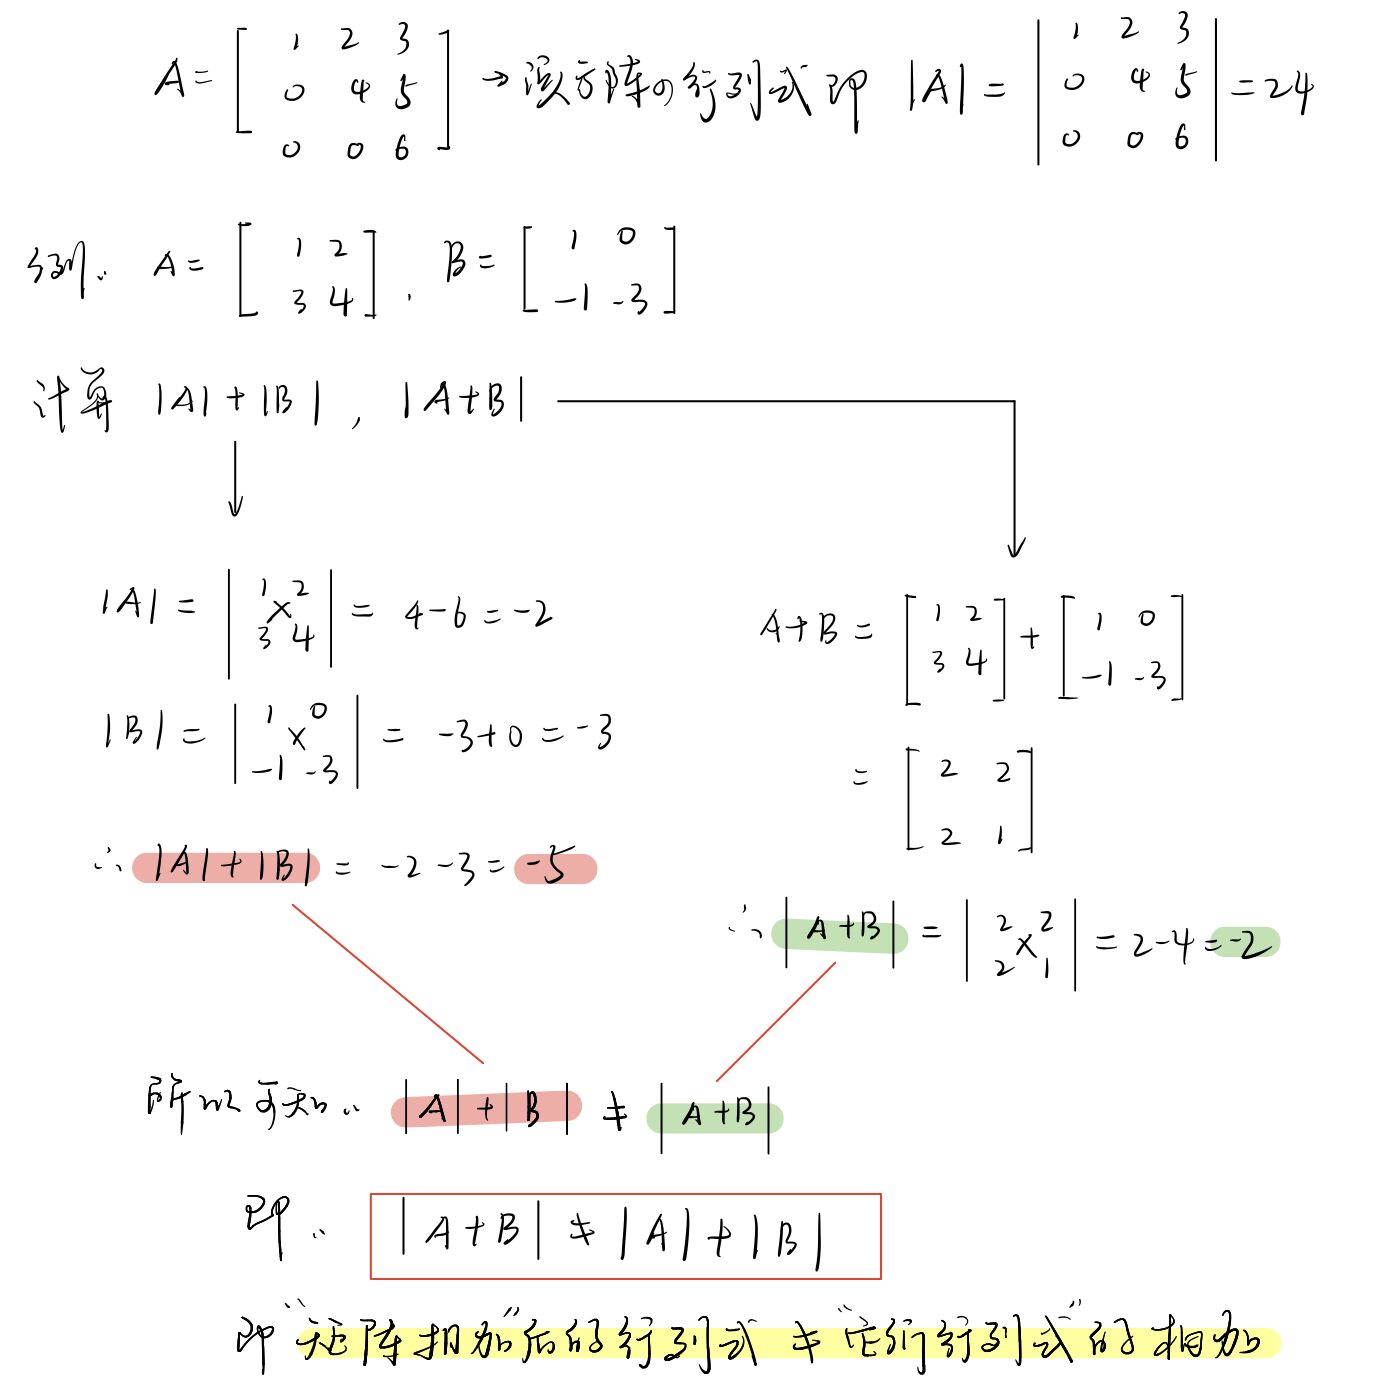 A = [ 1 2 3 ; 0 4 5 ; 0 0 6 ] → 该方阵の行列式即 |A| = | 1 2 3 ; 0 4 5 ; 0 0 6 | = 24
例: A = [ 1 2 ; 3 4 ] , B = [ 1 0 ; -1 -3 ]
计算 |A| + |B| , |A+B|
|A| = | 1 2 ; 3 4 | = 4-6 = -2
|B| = | 1 0 ; -1 -3 | = -3+0 = -3
∴ |A| + |B| = -2 -3 = -5
A+B = [ 1 2 ; 3 4 ] + [ 1 0 ; -1 -3 ]
= [ 2 2 ; 2 1 ]
∴ |A+B| = | 2 2 ; 2 1 | = 2-4 = -2
所以可知: |A| + |B| ≠ |A+B|
即: |A+B| ≠ |A| + |B|
即“矩阵相加”后的行列式 ≠ “它们行列式”的相加